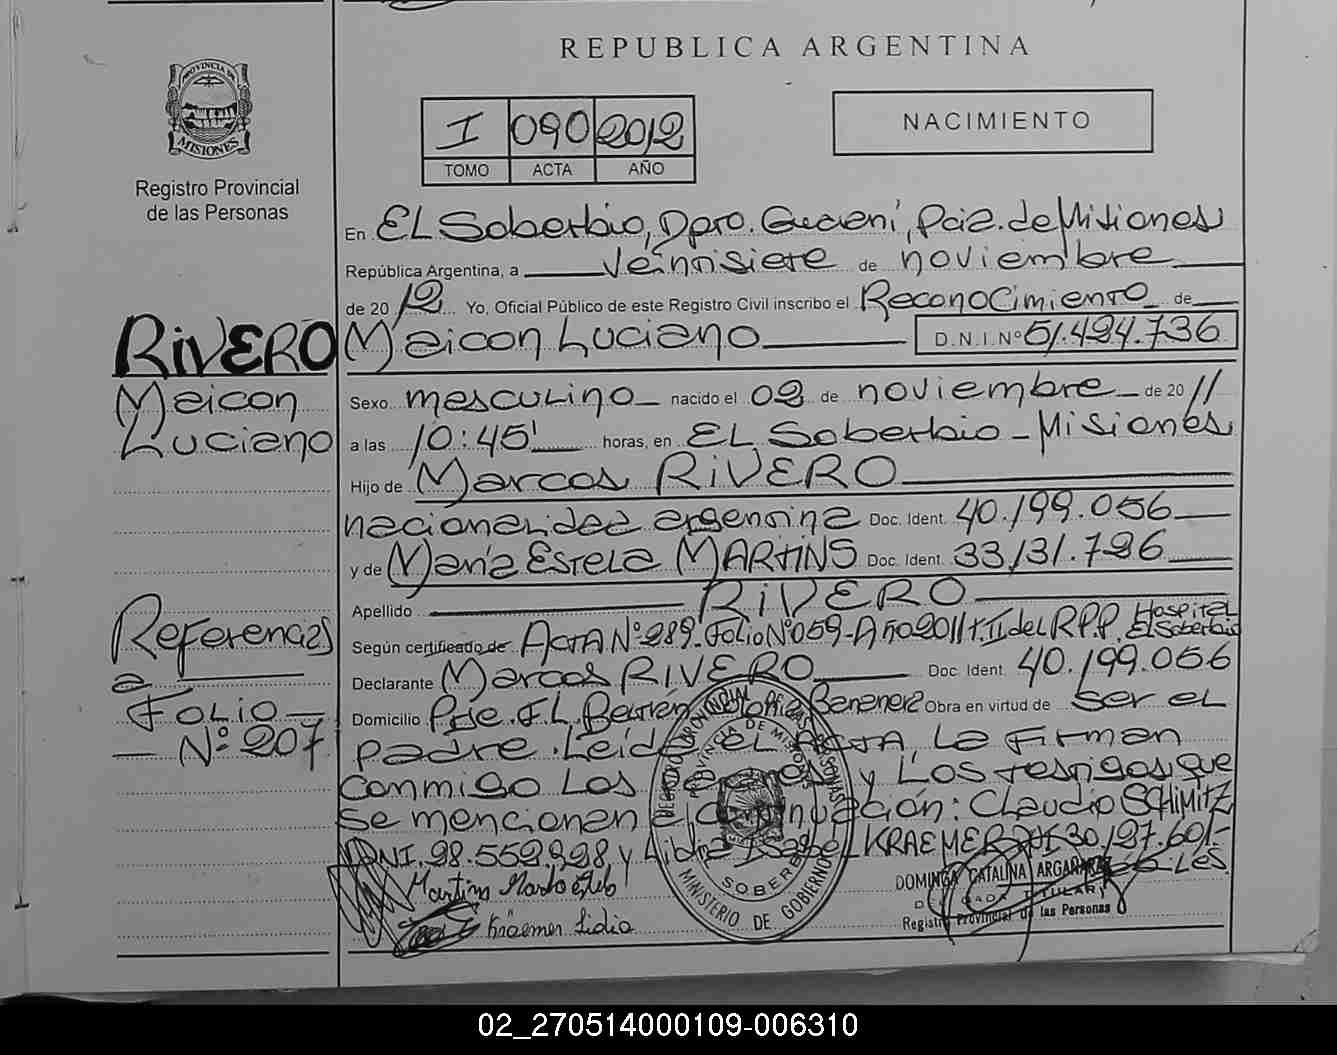 REPUBLICA ARGENTINA
PROVINCIA DE
MISIONES
Registro Provincial
de las Personas
I 090 2012
TOMO ACTA AÑO
NACIMIENTO
En EL Soberbio, Dpto. Guarani, Pcia. de Misiones
República Argentina, a veintisiete de noviembre
de 2012 Yo, Oficial Público de este Registro Civil inscribo el Reconocimiento de
Maicon Luciano D.N.I.Nº 51.424.736
RIVERO
Maicon
Luciano
Sexo masculino nacido el 02 de noviembre de 2011
a las 10:45' horas, en EL Soberbio - Misiones
Hijo de Marcos RIVERO
nacionalidad argentina Doc. Ident. 40.199.056
y de María Estela MARTINS Doc. Ident. 33.131.726
Apellido RIVERO
Según certificado de ACTA Nº 289. Folio Nº 059 - Año 2011 t. II del R.P.P. Hospital El Soberbio
Declarante Marcos RIVERO Doc. Ident. 40.199.056
Domicilio Pje. F.L. Beltrán Benenerz Obra en virtud de ser el
padre. Leída el ACTA, La Firman
conmigo Los y Los testigos que
se mencionan a continuación: Claudio SCHIMITZ
DNI. 28.559.928 y Lidia Isabel KRAEMER DNI 30.127.601.-
Referencias
a
FOLIO
Nº 207
REGISTRO PROVINCIAL DE LAS PERSONAS
PROVINCIA DE MISIONES
SOBERBIO
MINISTERIO DE GOBIERNO
DOMINGA CATALINA ARGAÑARAZ
DELEGADA TITULAR
Registro Provincial de las Personas
Kräemer Lidia
02_270514000109-006310